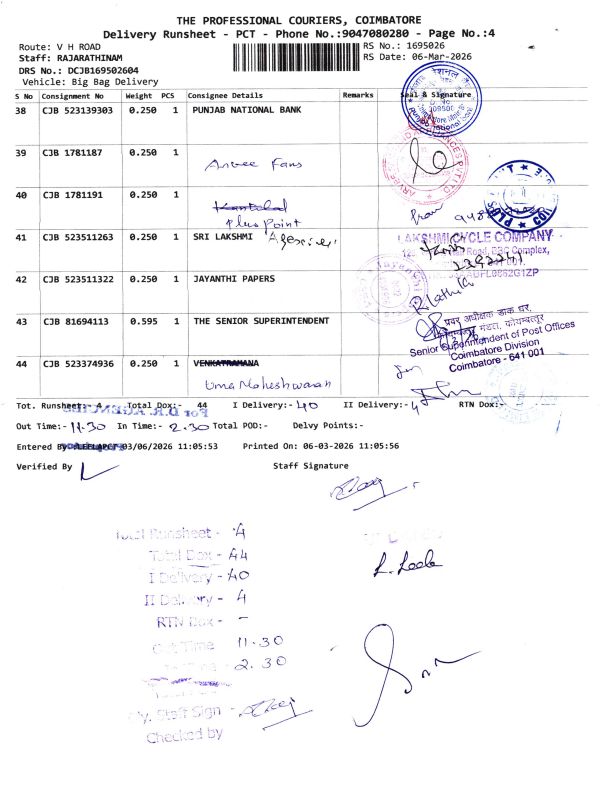 THE PROFESSIONAL COURIERS, COIMBATORE
Delivery Runsheet - PCT - Phone No.:9047080280 - Page No.:4
Route: V H ROAD
RS No.: 1695026
Staff: RAJARATHINAM
RS Date: 06-Mar-2026
DRS No.: DCJB169502604
Vehicle: Big Bag Delivery
S No Consignment No Weight PCS Consignee Details Remarks Seal & Signature
38 CJB 523139303 0.250 1 PUNJAB NATIONAL BANK
39 CJB 1781187 0.250 1
Anvee Fans
40 CJB 1781191 0.250 1
Plus Point
41 CJB 523511263 0.250 1 SRI LAKSHMI Agencies
LAKSHMI CYCLE COMPANY
42 CJB 523511322 0.250 1 JAYANTHI PAPERS
R. Lathika
43 CJB 81694113 0.595 1 THE SENIOR SUPERINTENDENT
प्रवर अधीक्षक डाक घर,
Senior Superintendent of Post Offices
Coimbatore Division
Coimbatore - 641 001
44 CJB 523374936 0.250 1 VENKATRAMANA
Uma Maheshwaran
Tot. Runsheet:- 4 Total Dox:- 44 I Delivery:- 40 II Delivery:- 4 RTN Dox:-
Out Time:- 11.30 In Time:- 2.30 Total POD:- Delvy Points:-
Entered By 03/06/2026 11:05:53 Printed On: 06-03-2026 11:05:56
Verified By
Staff Signature
Total Runsheet - 4
Total Dox - 44
I Delivery - 40
II Delivery - 4
RTN Dox - -
Out Time 11.30
2.30
Staff Sign -
Checked by